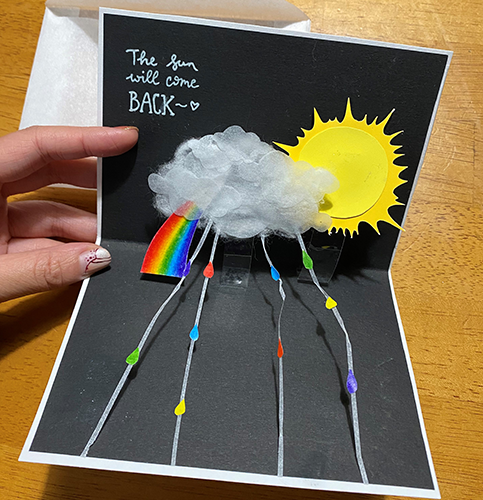 The sun
will come
BACK~♡